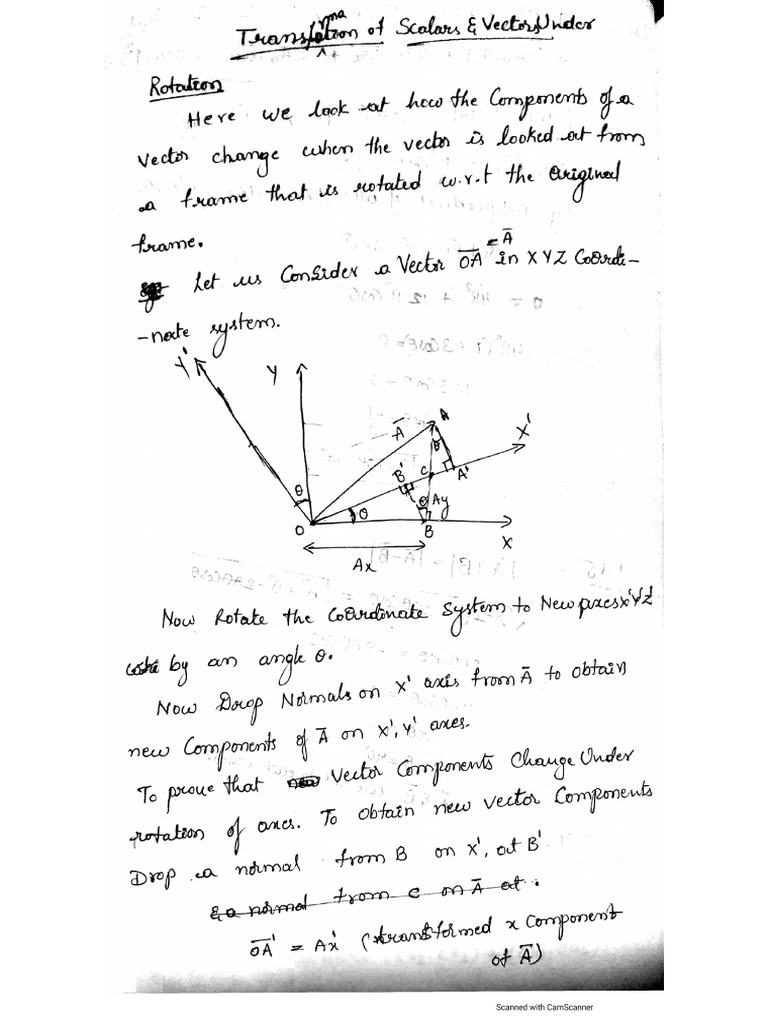 Transformation of Scalars & Vectors Under
Rotation
Here we look at how the Components of a
vector change when the vector is looked at from
a frame that is rotated w.r.t the Original
frame.
Let us Consider a Vector OA = A in XYZ Coordi-
-nate system.
Y'
Y
A
A
X'
θ
B'
C
A'
θ
θ
Ay
θ
O
B
X
Ax
Now Rotate the Coordinate System to New axes X'Y'Z
by an angle θ.
Now Drop Normals on X' axis from A to obtain
new Components of A on X', Y' axes.
To prove that Vector Components Change Under
rotation of axes. To obtain new vector Components
Drop a normal from B on X', at B'
& a normal from C on A at.
OA' = Ax' (transformed x Component
of A)
Scanned with CamScanner